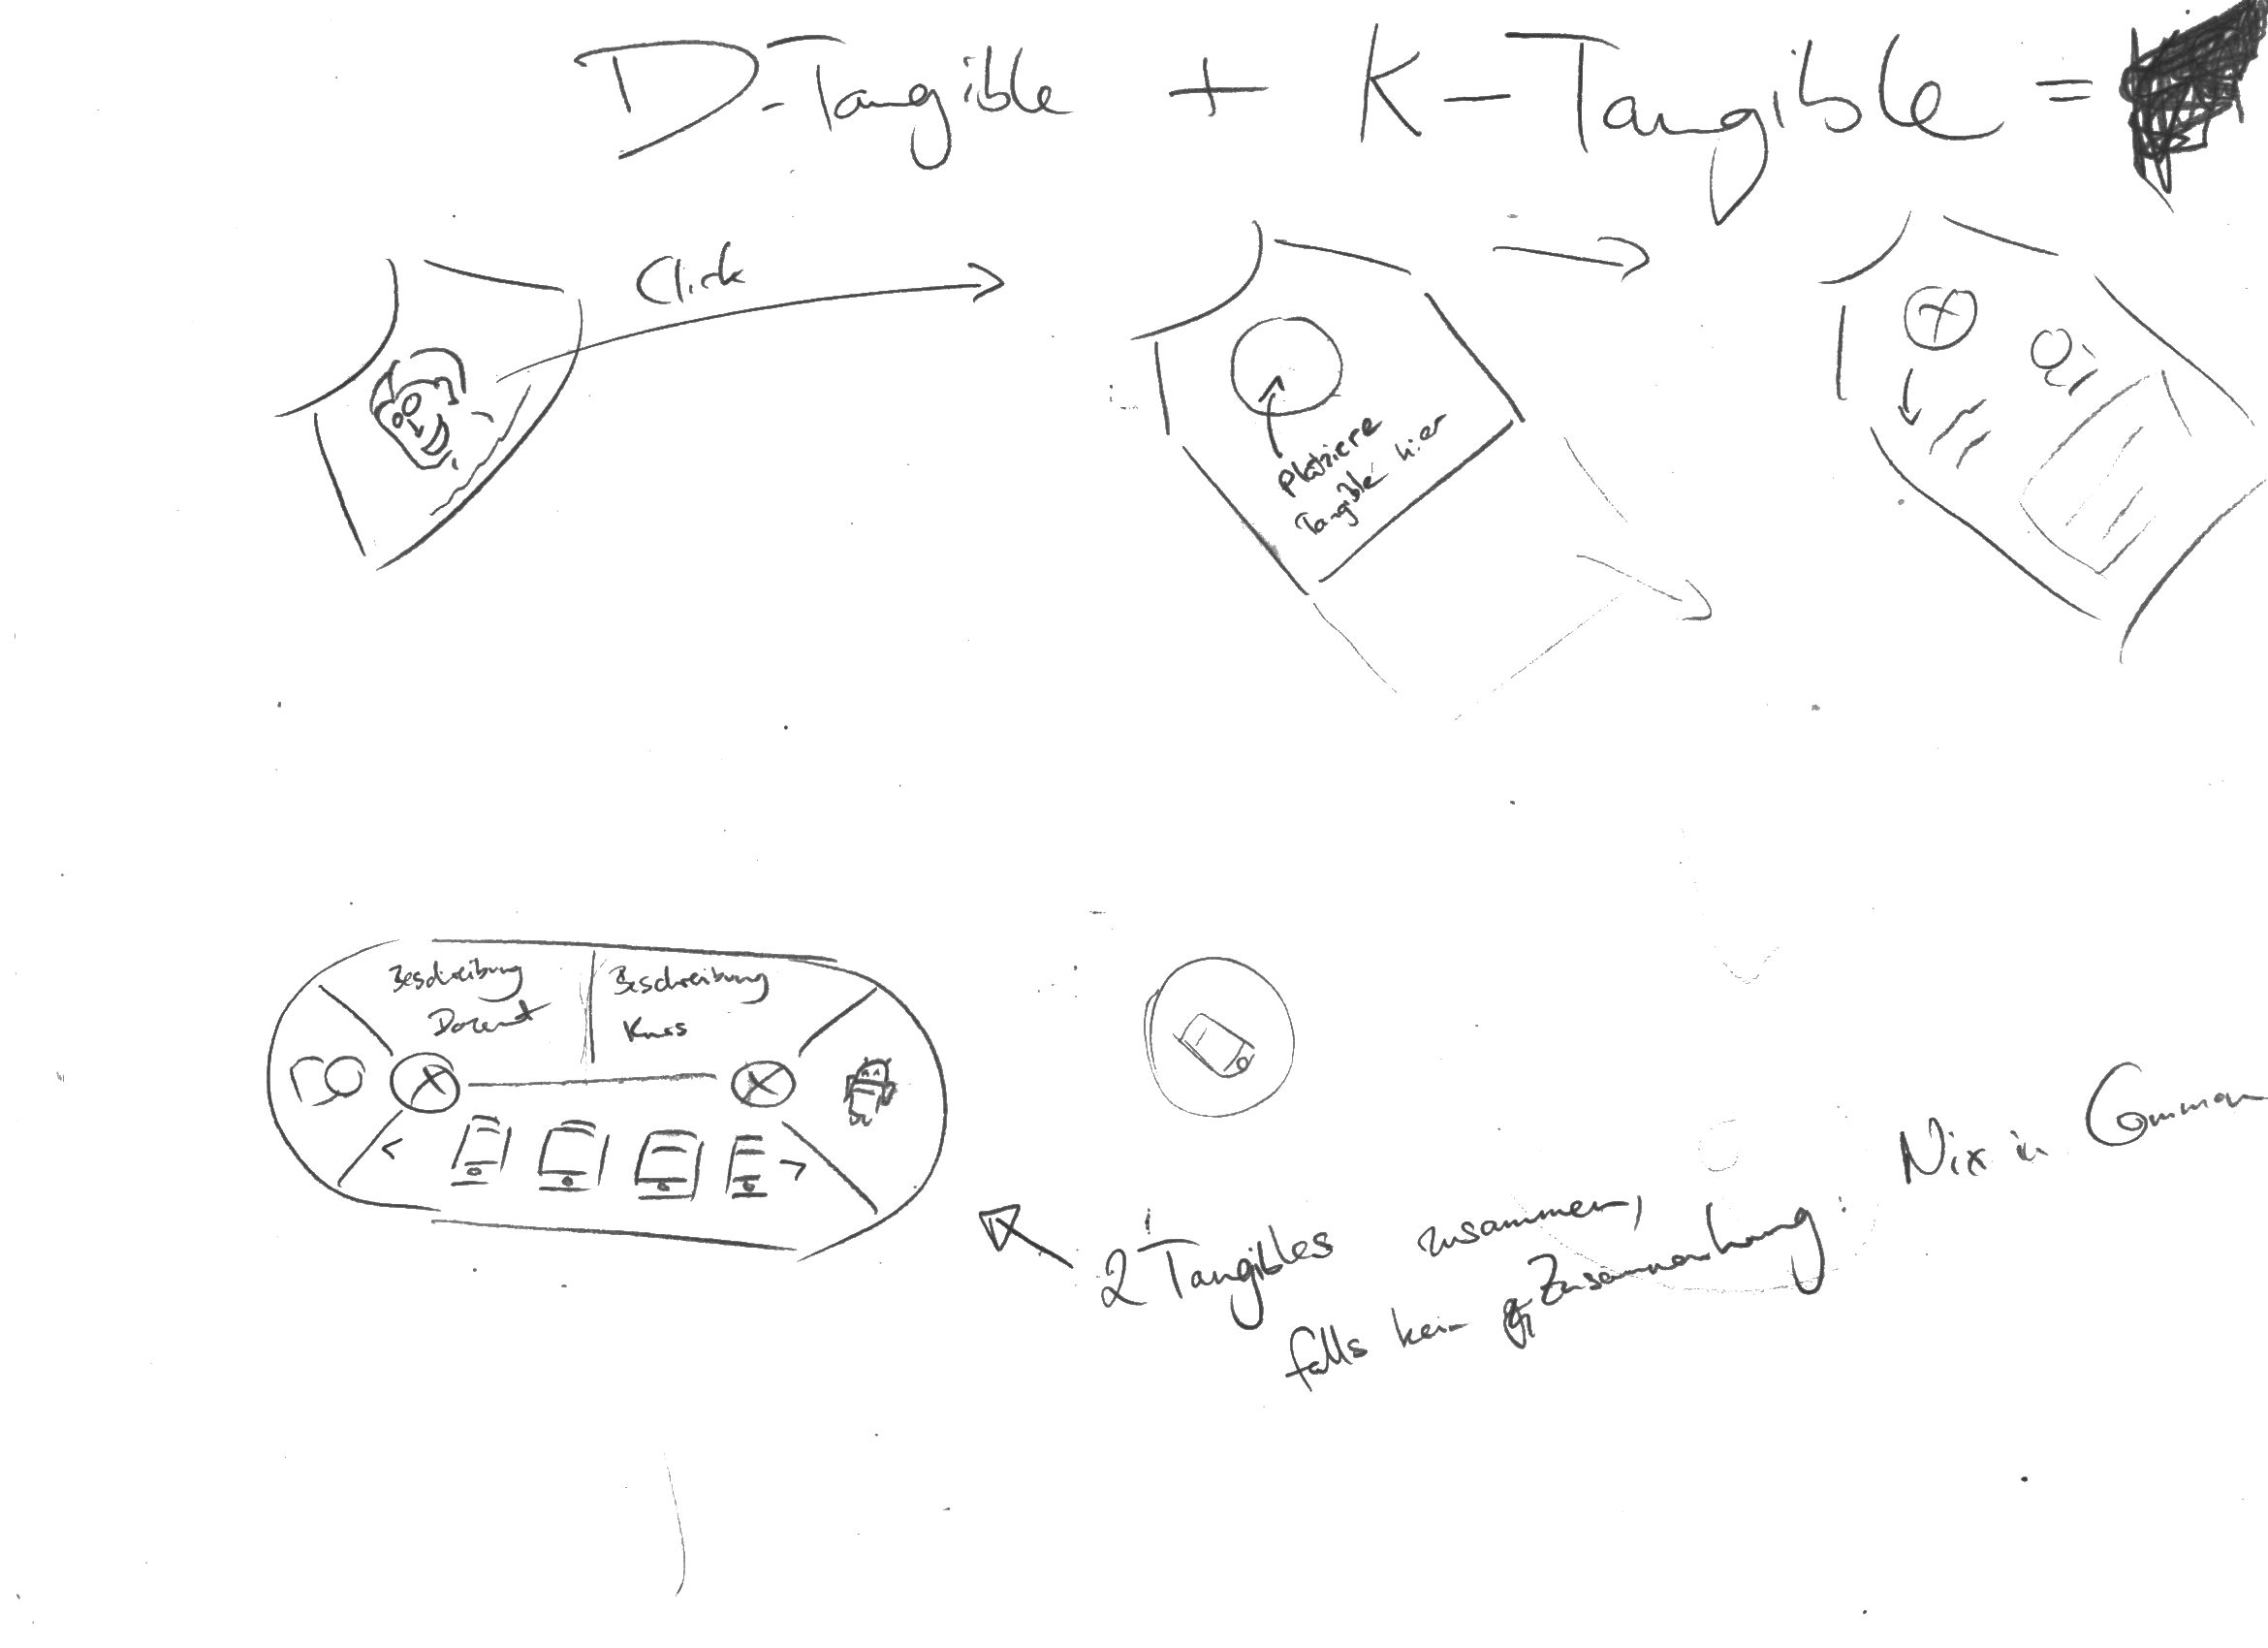 D-Tangible + K-Tangible =
Click
platziere
Tangible hier
Beschreibung
Dozent
Beschreibung
Kurs
2 Tangibles zusammen,
falls kein Zusammenhang: Nix in Common